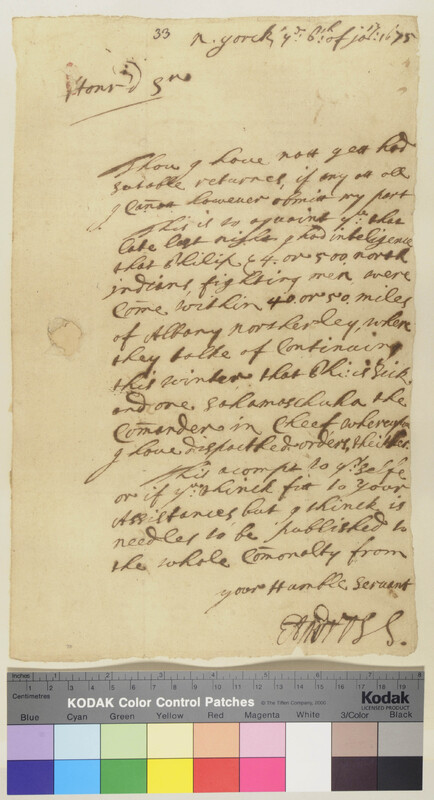 33
N. yorck, ye 6th of jan: 1675
Honrd Sr
Thou I have nott yett had
sutable returnes, if any att all
I Canott however obmitt my part
This is to aquaint you that
late last night I had inteligence
that Philip & 4. or 500 north
indians, fighting men, were
Come within 40. or 50. miles
of Albany northerley, where
they talke of Continuing
this winter that Phi: is sick
and one Sahamoschuha the
Comander in Cheef whereupon
I have dispatched orders, theither
This acompt to yr selfe
or if you thinck fitt to Your
Assistances but I thinck is
needles to be published to
the whole Comonalty from
your Humble Servant
E Andross.
Inches 1 2 3 4 5 6 7 8
Centimetres 1 2 3 4 5 6 7 8 9 10 11 12 13 14 15 16 17 18 19
KODAK Color Control Patches © The Tiffen Company, 2000 Kodak
LICENSED PRODUCT
Blue Cyan Green Yellow Red Magenta White 3/Color Black